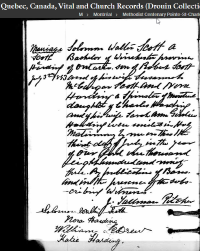 Quebec, Canada, Vital and Church Records (Drouin Collection
M › Montréal › Methodist Centenary Pointe-St-Charl
Marriage Solomon Walter Scott a
Scott Bachelor of Winchester province
Harding of Ontario son of Robert Scott
July 3rd 1893 and of his wife Susannah
McGregor Scott and Nora
Harding a Spinster of Montreal
daughter of Charles Harding
and of his wife Sarah Ann
Harding were united in Holy
Matrimony by me on this the
third day of July in the year
of our Lord one thousand
eight hundred and ninety
three. By publication of Banns
and in the presence of the subs-
cribing witnesses.
J. Tallman Pitcher
Solomon Walter Scott
Nora Harding
William
Katie Harding.